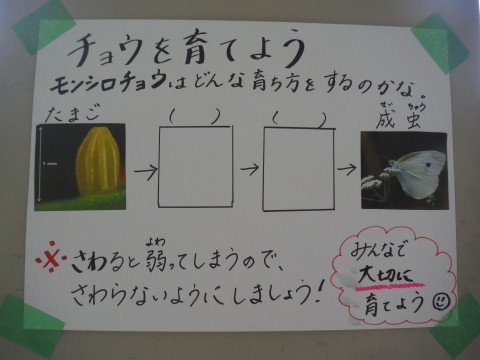 チョウを育てよう
モンシロチョウはどんな育ち方をするのかな。
たまご
(　　)
(　　)
せい ちゅう
成虫
※ さわると弱ってしまうので、
よわ
さわらないようにしましょう!
みんなで
大切に
育てよう